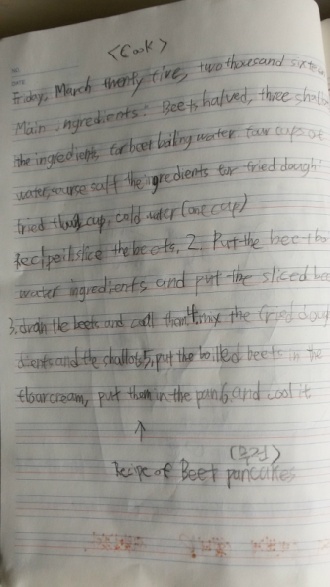 <Cook>
Friday, March twenty five, two thousand sixteen
Main ingredients: Beets halved, three shallo
the ingredients for beet boiling water four cups of
water, coarse salt the ingredients for fried dough
fried cup, cold water (one cup)
Recipe: 1. slice the beets, 2. Put the beet bo
water ingredients and put the sliced bee
3. drain the beets and cool them 4. mix the fried dough
dients and the shallots 5. put the boiled beets in the
flour cream, put them in the pan 6. and cool it
↑
(무전)
Recipe of Beet pancakes